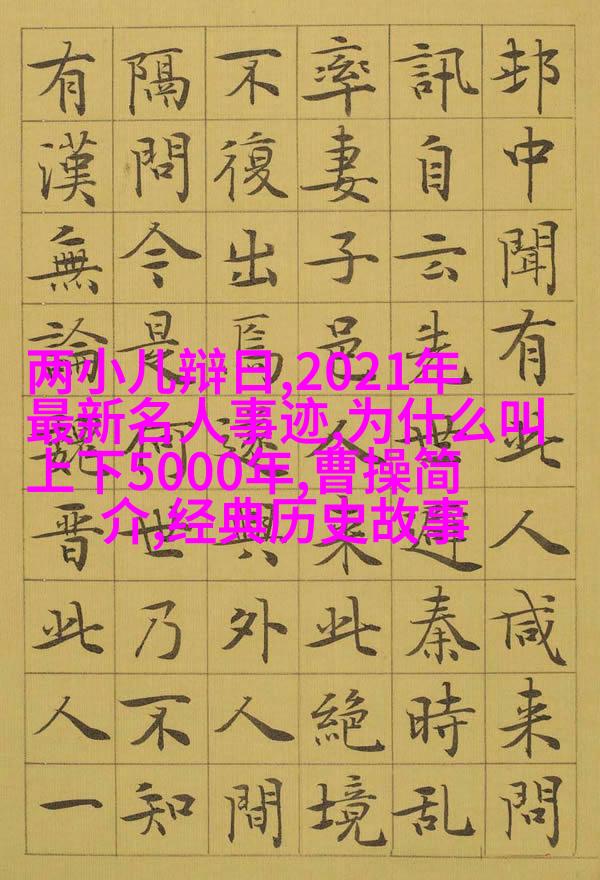 邨中聞有此人咸来問
訊自云先世避秦時乱
率妻子邑人来此絶境
不復出焉遂與外人間
隔問今是何世乃不知
有漢無論魏晋此人一
两小儿辩日,2021年
最新名人事迹,为什么叫
上下5000年,曹操简
介,经典历史故事